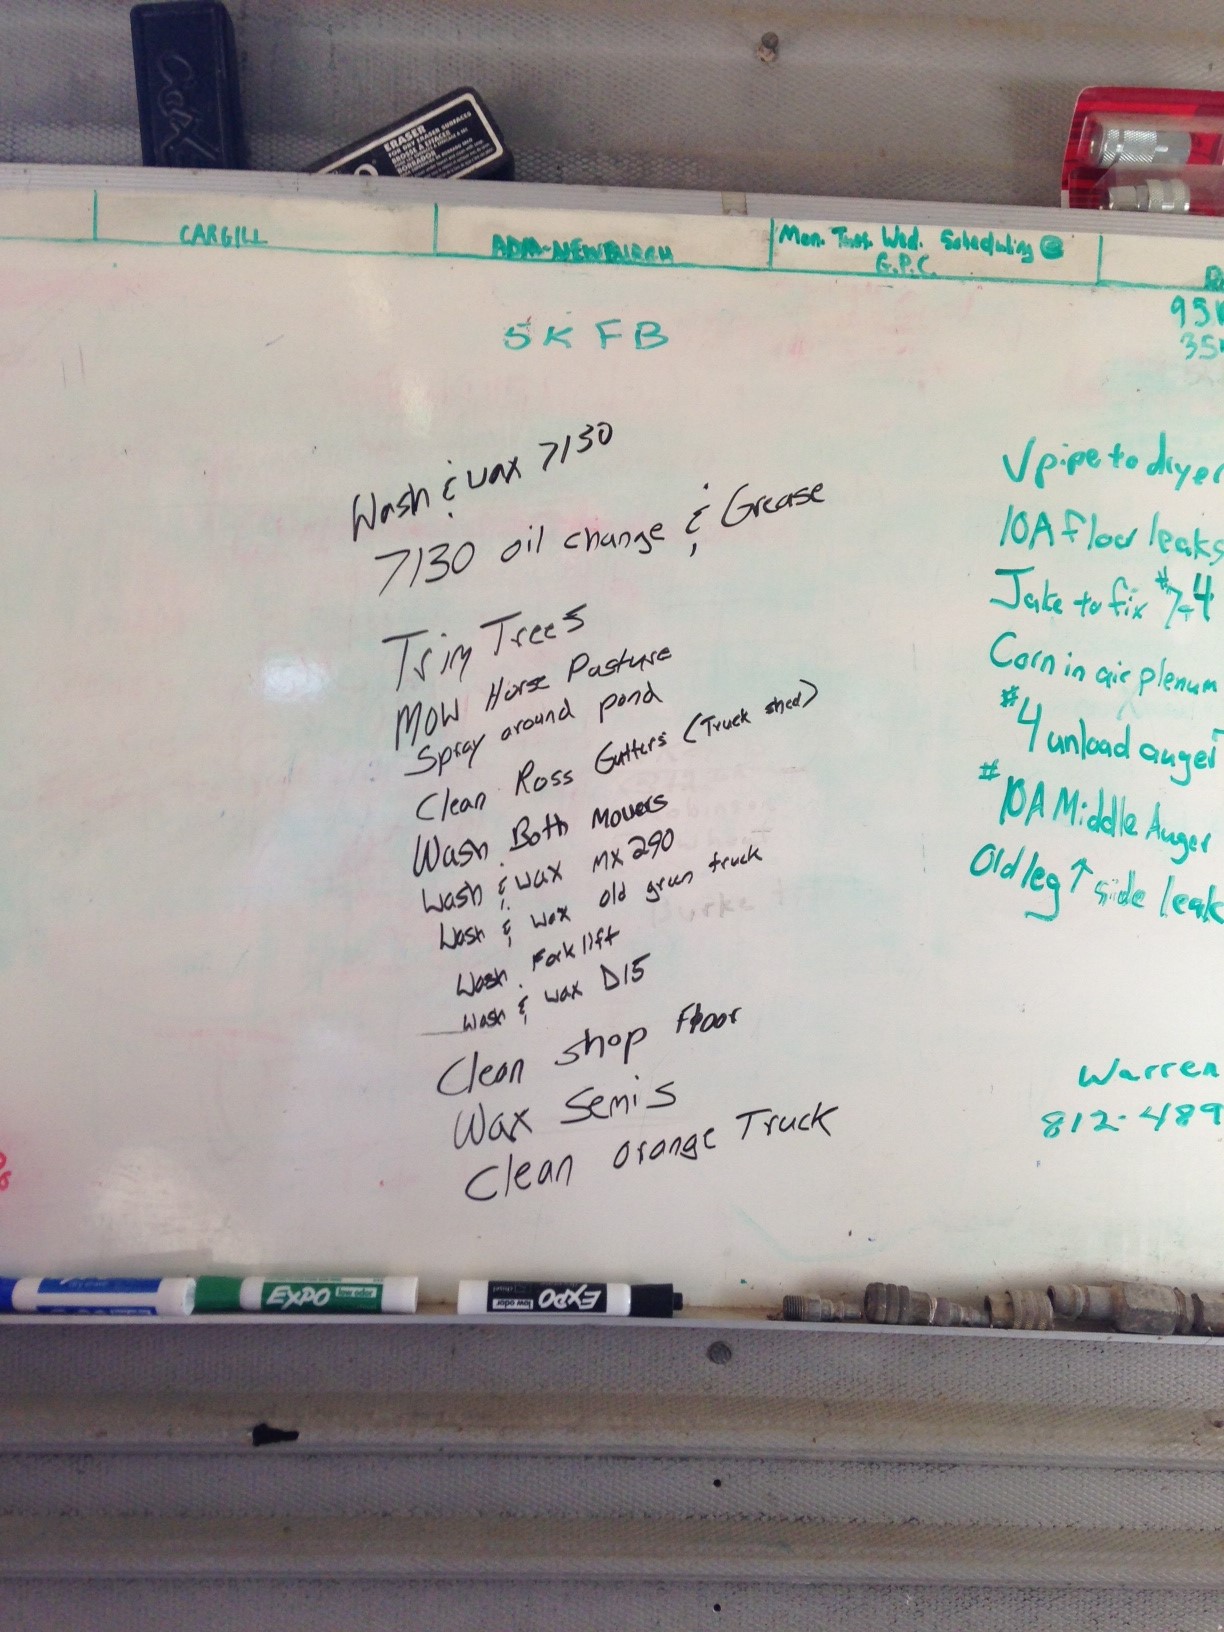 CatX
ERASER
FOR DRY ERASER SURFACES
BROSSE À EFFACER
BORRADOR
CARGILL
ADM-NEWBURGH
Mon. Tues. Wed. Scheduling @
G.P.C.
5K FB
Wash & wax 7130
7130 oil change & Grease
Trim Trees
Mow Horse Pasture
Spray around pond
Clean Ross Gutters (Truck shed)
Wash Both Mowers
Wash & wax MX 290
Wash & wax old green truck
Wash Forklift
Wash & wax D15
Clean shop Floor
Wax Semis
Clean orange Truck
95
35
√ pipe to dryer
10A floor leaks
Jake to fix #7-4
Corn in air plenum
#4 unload auger
#10A Middle Auger
Old leg ↑ side leak
Warren
812-489
%
EXPO
EXPO
low odor